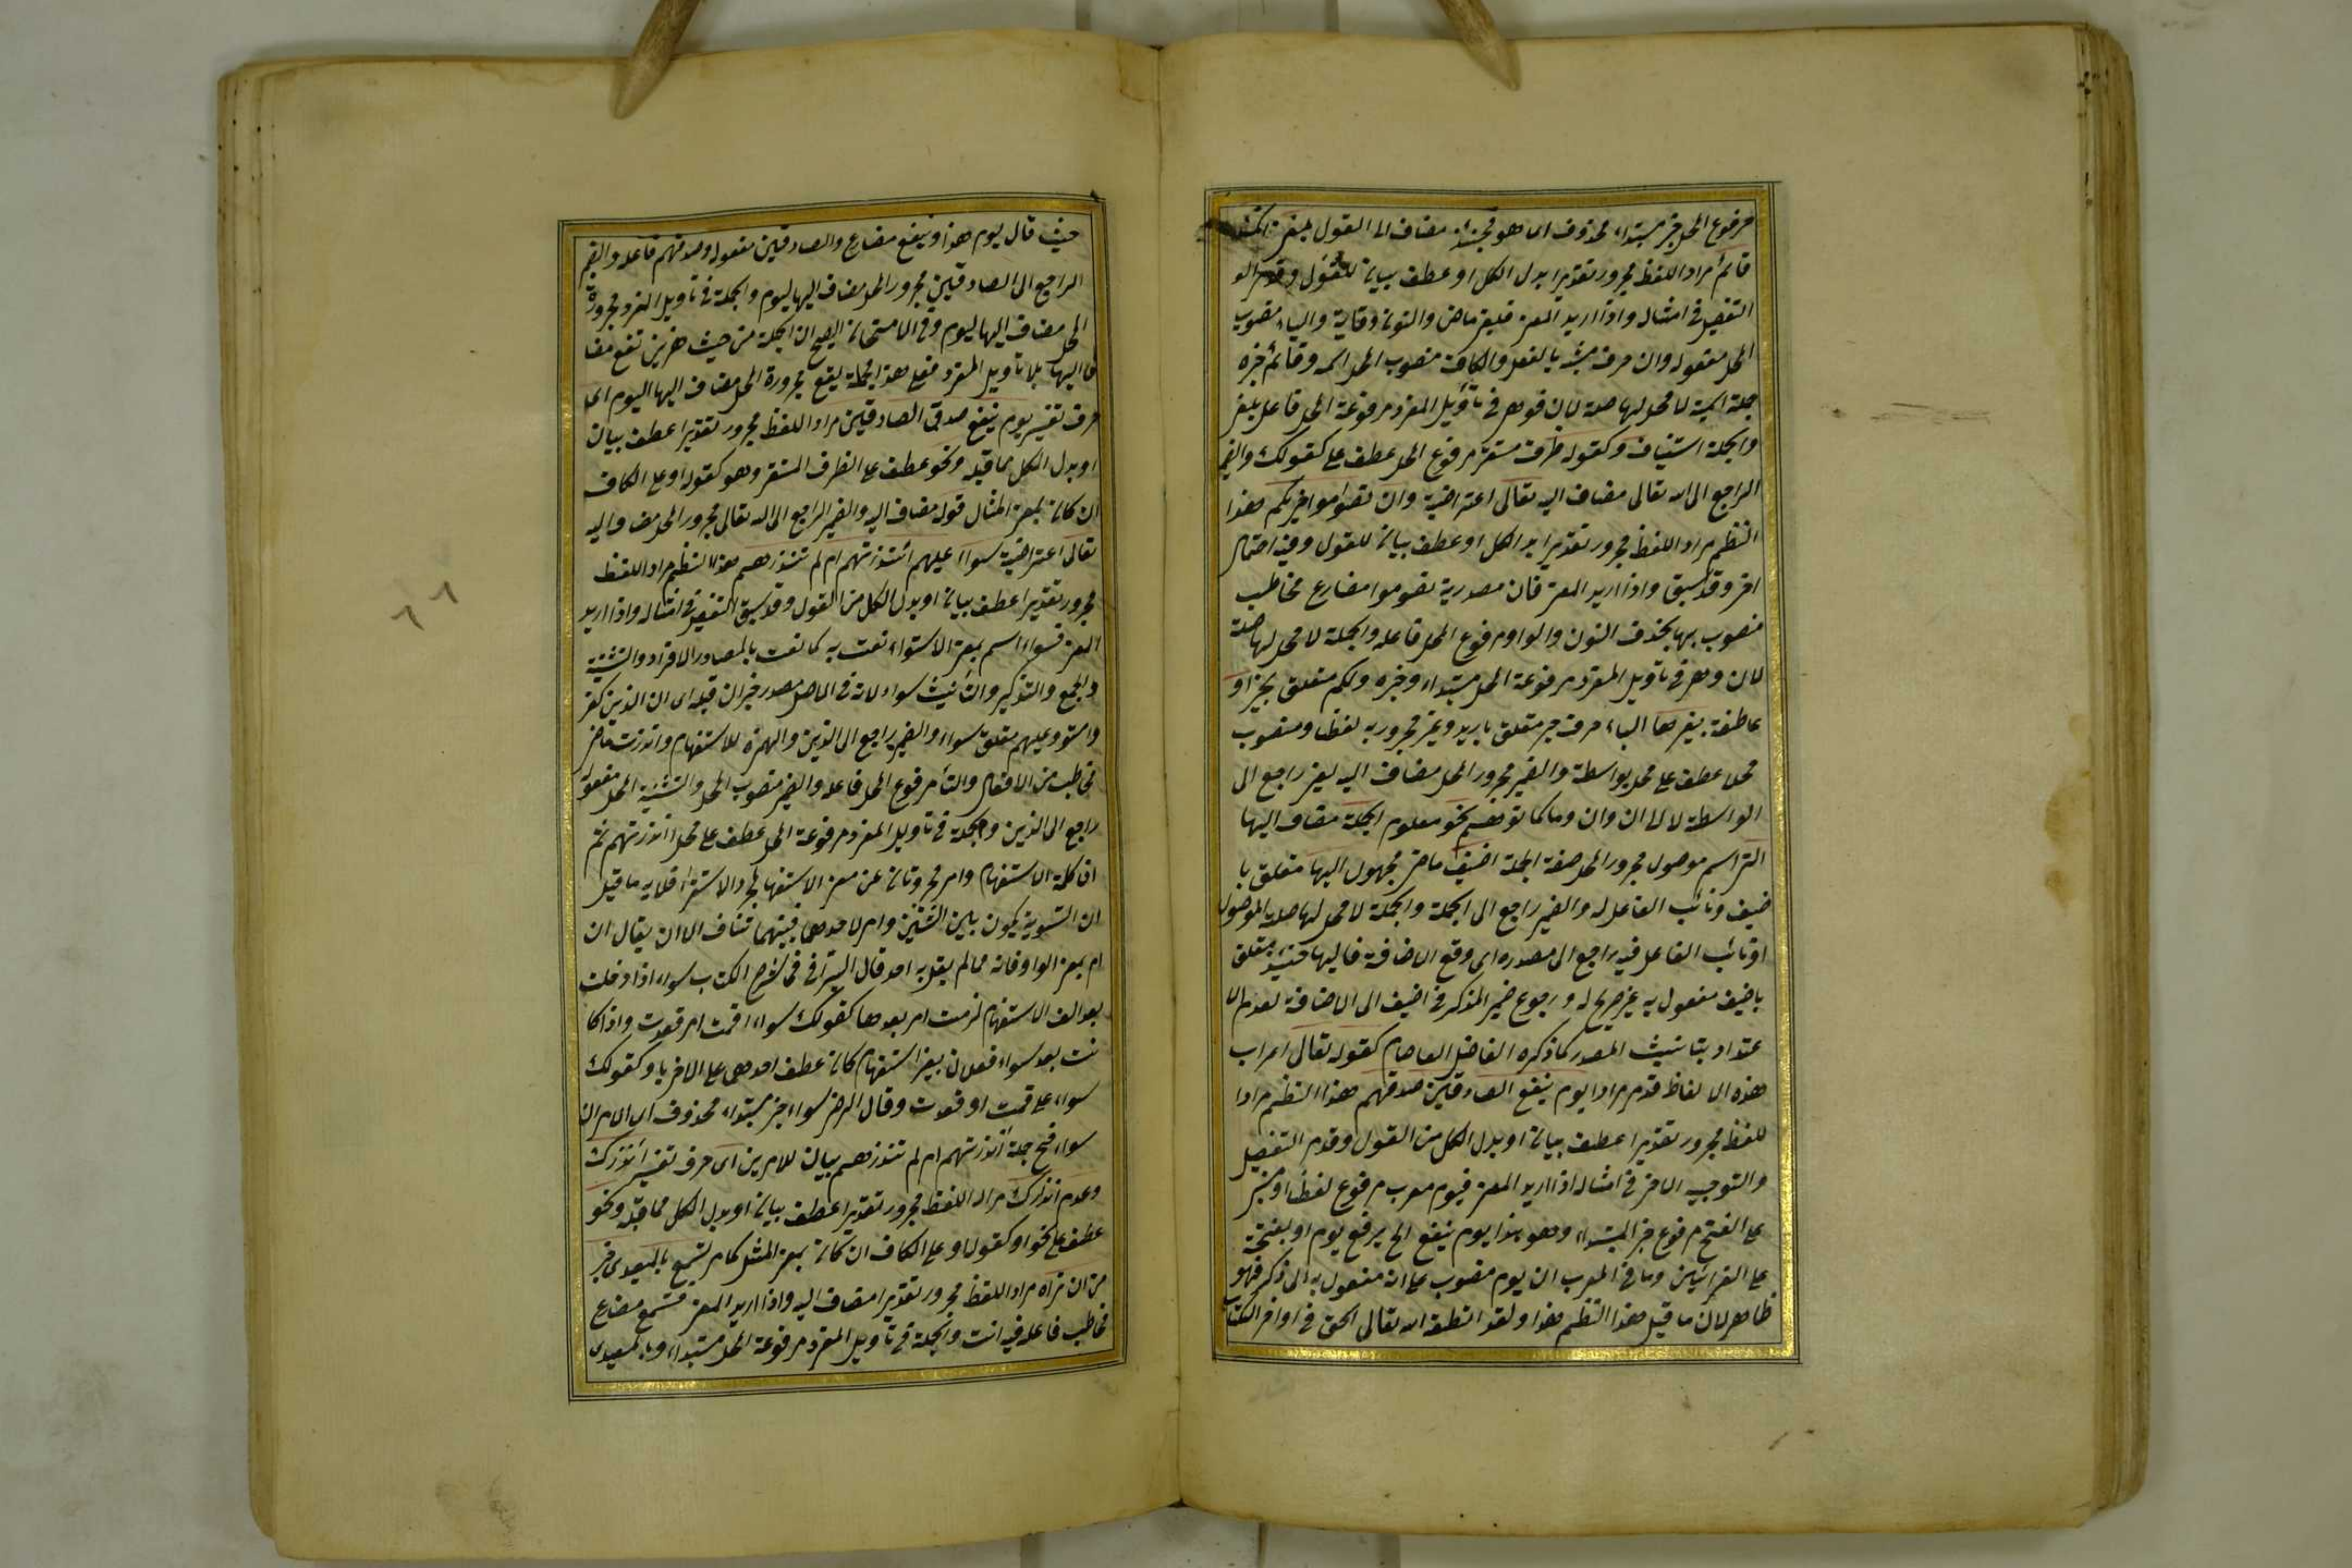 مرفوع المحل خبر مبتداء محذوف اى هو مضاف الى القول بلغنى انك
قائم مراد اللفظ مجرور تقديرا بدل الكل او عطف بيان للقول
التفصيل فى امثاله واذا اريد المعنى فبلغ ماض والنون وقاية والياء منصوب
المحل مفعوله وان حرف مشبه بالفعل والكاف منصوب المحل اسمه وقائم خبره
جملة اسمية لا محل لها صلة لان فهو فى تأويل المفرد مرفوعة المحل فاعل بلغ
والجملة استيناف وكقوله ظرف مستقر مرفوع المحل عطف على كقولك والضمير
الراجع الى الله تعالى مضاف اليه تعالى اعتراضية وان تصوموا خير لكم هذا
النظم مراد اللفظ مجرور تقديرا بدل الكل او عطف بيان للقول وفيه احتمال
اخر وقد سبق واذا اريد المعنى فان مصدرية تصوموا مضارع مخاطب
منصوب بها بحذف النون والواو مرفوع المحل فاعله والجملة لا محل لها صلة
لان وهى فى تأويل المفرد مرفوعة المحل مبتداء وخير خبره ولكم متعلق بخير او
عاطفة بغيرها الباء حرف جر متعلق باريد وغير مجرور به لفظا ومنصوب
محلا عطف على محل بواسطة والضمير مجرور المحل مضاف اليه لغير راجع الى
الواسطة لا الى ان وان وما كما توهم نحو معلوم الجملة مضاف اليها
التى اسم موصول مجرور المحل صفة الجملة اضيف ماض مجهول اليها متعلق با
ضيف ونائب الفاعل له والضمير راجع الى الجملة والجملة لا محل لها صلة الموصول
او نائب الفاعل فيه راجع الى مصدره اى وقع الاضافة فاليها حينئذ متعلق
باضيف مفعول به غير صريح له ورجوع ضمير المذكر فى اضيف الى الاضافة لعدم الا
عتداد بتأنيث المصدر كما ذكره الفاضل العصام كقوله تعالى اعراب
هذه الالفاظ قد مر مرارا يوم ينفع الصادقين صدقهم هذا النظم مراد ا
للفظ مجرور تقديرا عطف بيان او بدل الكل من القول وقد مر التفصيل
والتوجيه الاخر فى امثاله اذا اريد المعنى فيوم معرب مرفوع لفظا او مبنى
على الفتح مرفوع خبر المبتداء وهو هذا يوم ينفع الخ برفع يوم او بفتحة
على القرائتين وما فى المعرب ان يوم منصوب على انه مفعول به الى ذكر فهو
ظاهر لان ما قبل هذا النظم هذا ولقد انطقه الله تعالى الحق فى اواخر الكتاب
حيث قال يوم هذا وينفع مضارع والصادقين مفعوله وصدقهم فاعله والضمير
الراجع الى الصادقين مجرور المحل مضاف اليها ليوم والجملة فى تأويل المفرد مجرورة
المحل مضاف اليها ليوم وفى الامتحان الصحيح ان الجملة من حيث هى تقع مضا
فا اليها بلا تأويل المفرد فعلى هذا الجملة يقع مجرورة المحل مضاف اليها اليوم اى
حرف تفسير يوم ينفع صدق الصادقين مراد اللفظ مجرور تقديرا عطف بيان
او بدل الكل مما قبله ونحو عطف على الظرف المستقر وهو كقوله او على الكاف
ان كان بمعنى المثال قوله مضاف اليه والضمير الراجع الى الله تعالى مجرور المحل مضاف اليه
تعالى اعتراضية سواء عليهم ءانذرتهم ام لم تنذرهم هذا النظم مراد اللفظ
مجرور تقديرا عطف بيان او بدل الكل من القول وقد سبق التفصيل فى امثاله واذا اريد
المعنى فسواء اسم بمعنى الاستواء نعت به كما نعت بالمصادر الافراد والتثنية
والجمع والتذكير والتأنيث سواء لانه فى الاصل مصدر خبر ان قبله اى ان الذين كفر
وا مستو وعليهم متعلق بسواء والضمير راجع الى الذين والهمزة للاستفهام وانذرت ماض
مخاطب من الافعال والتاء مرفوع المحل فاعله والضمير منصوب المحل مفعوله
راجع الى الذين والجملة فى تأويل المفرد مرفوعة المحل عطف على محل ءانذرتهم ثم
ان كلمة الاستفهام وام مجردتان عن معنى الاستفهام لمجرد الاستواء فلا يه ما قيل
ان التسوية يكون بين اثنين وام لاحدهما فبينهما تناف الا ان يقال ان
ام بمعنى الواو فانه مما لم يقل به احد قال السيرافى فى شرح الكتاب سواء اذا دخلت
بعد الف الاستفهام لزمت ام بعدها كقولك سواء اقمت ام قعدت واذا كا
نت بعد سواء فعلان بغير استفهام كان عطف احدهما على الاخر باو كقولك
سواء على قمت او قعدت وقال الرضى سواء خبر مبتداء محذوف اى الامران
سواء فتح جملة ءانذرتهم ام لم تنذرهم بيان للامرين اى حرف تفسير انذارك
وعدم انذارك مراد اللفظ مجرور تقديرا عطف بيان او بدل الكل مما قبله ونحو
عطف على نحو او كقوله او على الكاف ان كان بمعنى المثل كما مر تسمع بالمعيدى خير
من ان تراه مراد اللفظ مجرور تقديرا مضاف اليه واذا اريد المعنى فتسمع مضارع
مخاطب فاعله فيه انت والجملة فى تأويل المفرد مرفوعة المحل مبتداء وبالمعيدى
٦٦